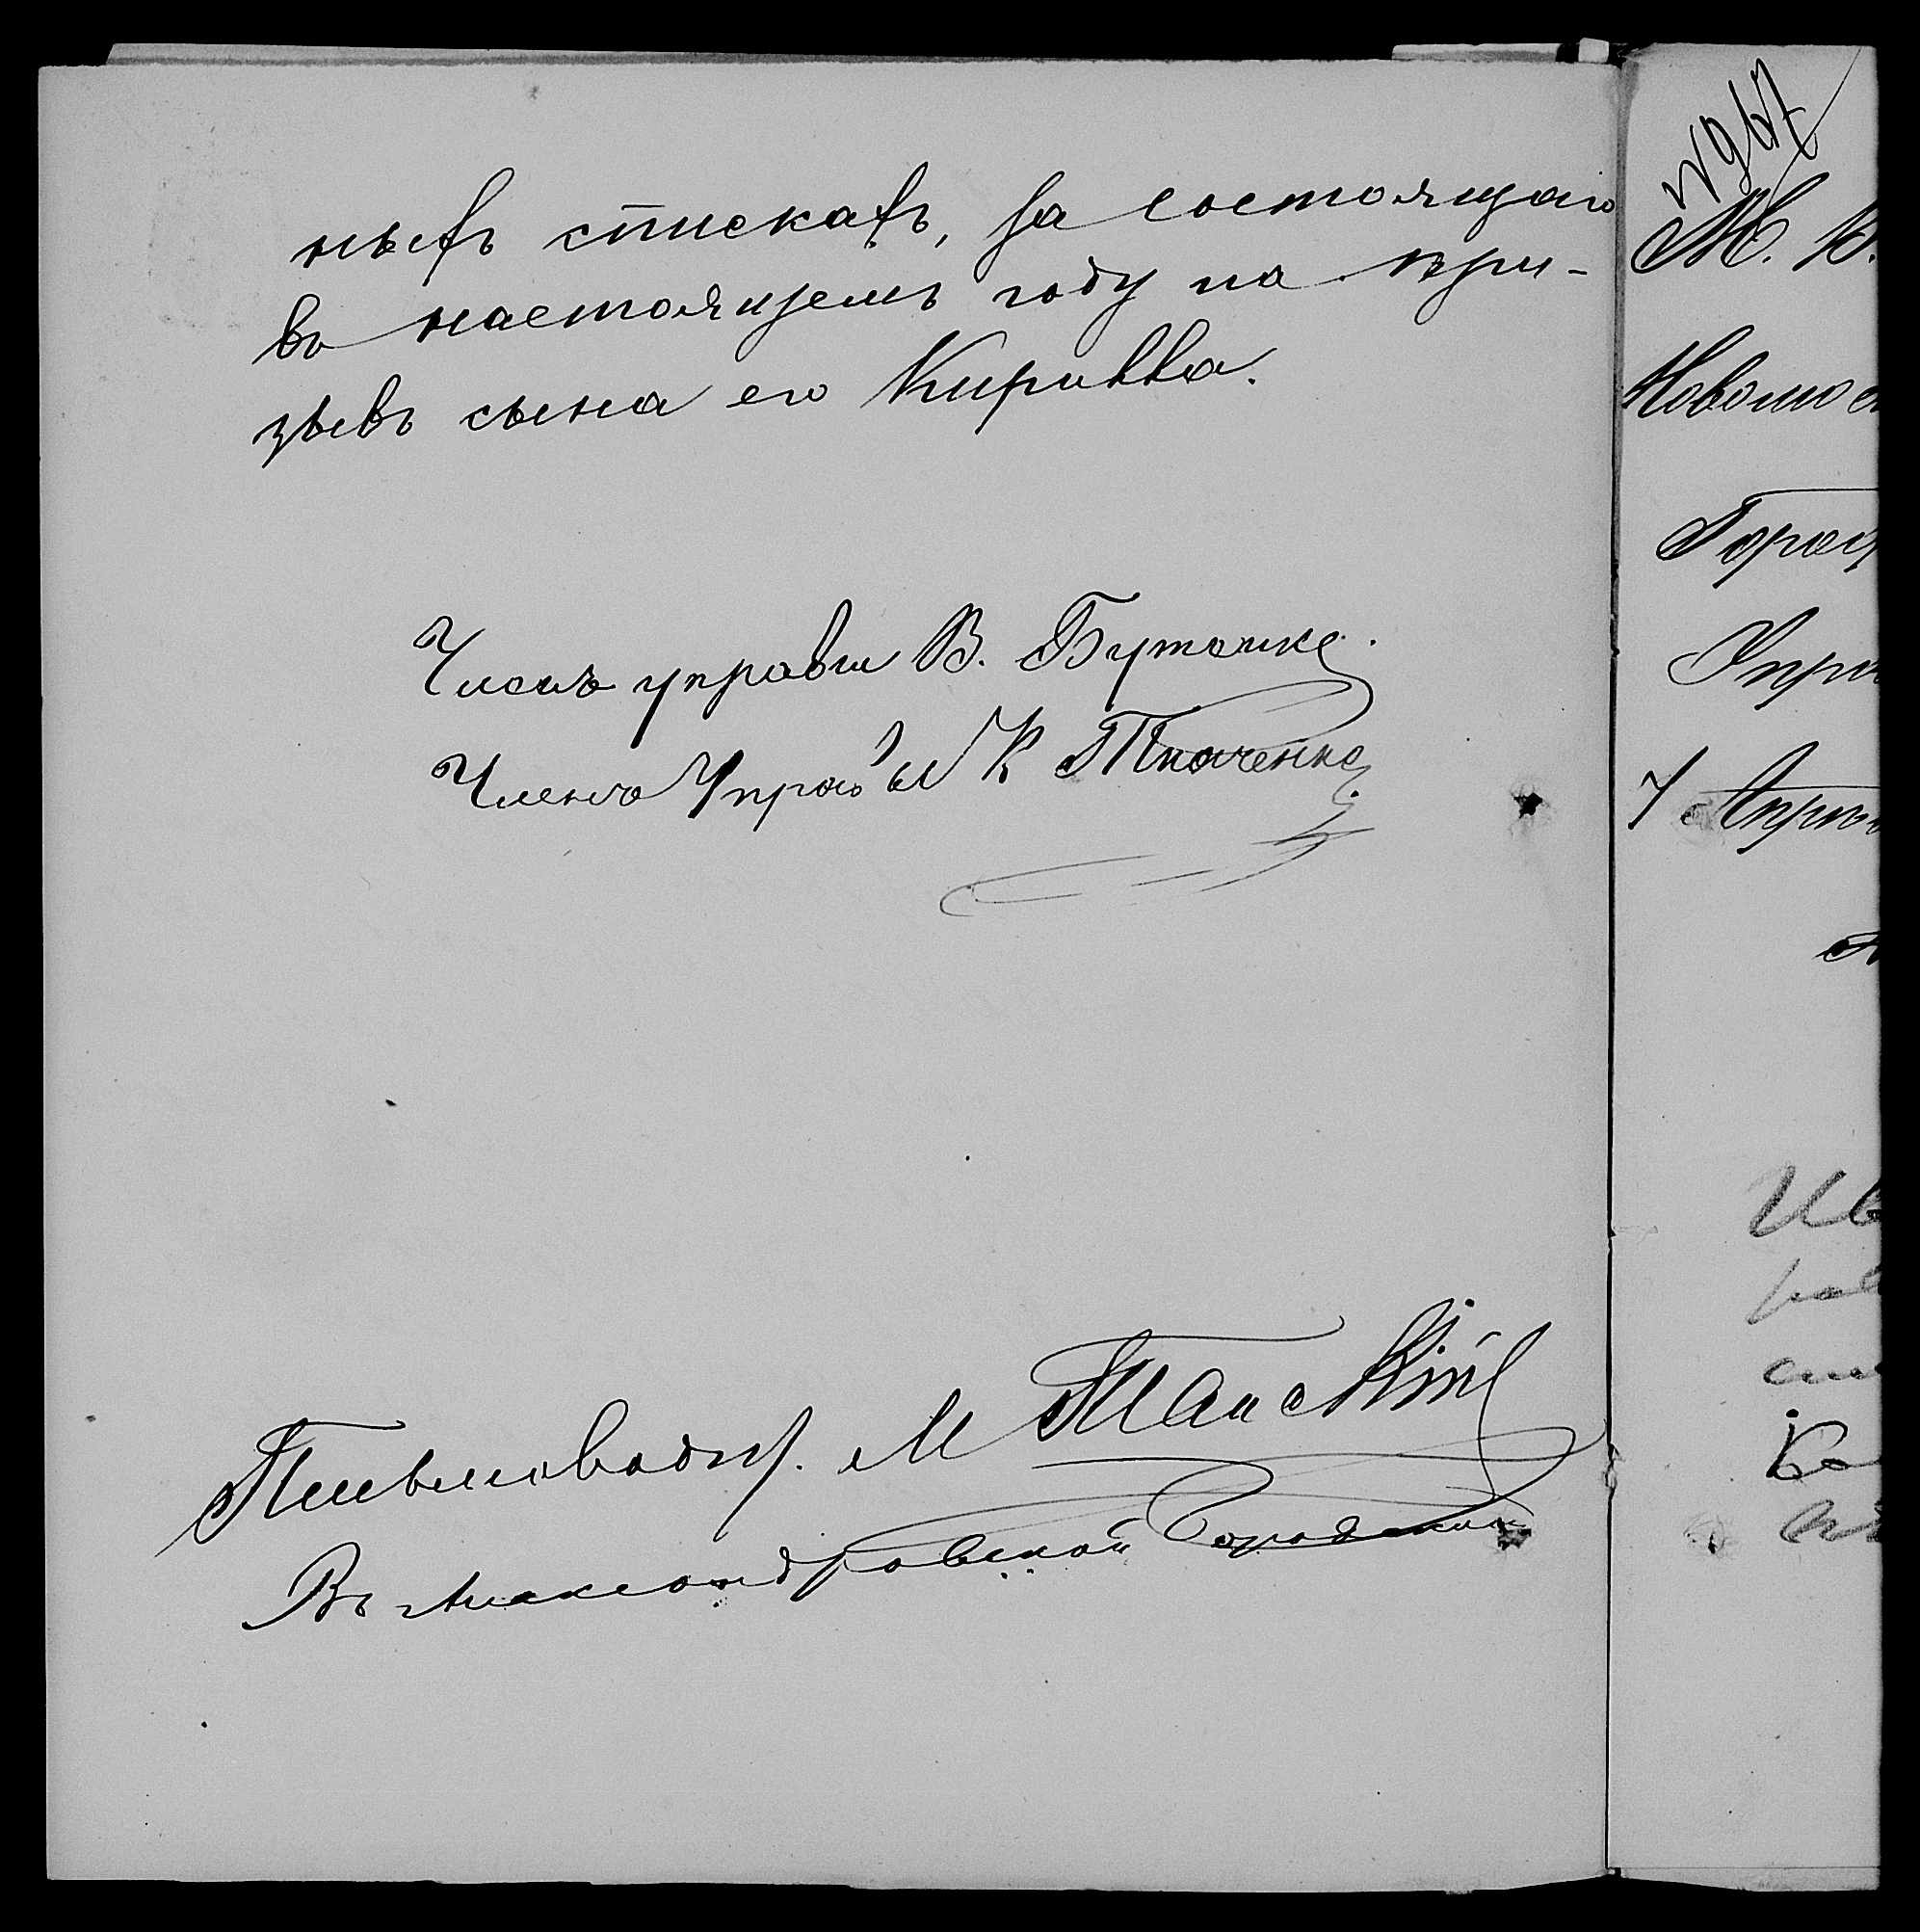 ныхъ спискахъ, за состоящаго
въ настоящемъ году на при-
зывъ сына его Кирилла.
Членъ управы В. Буташке
Членъ Управы К Ткаченко
Письмовод. М Манскій
Въ Александровской Городской
№ 967
М. В.
Новомос
Город
Упра
7 Апрѣл
Ив
Ко